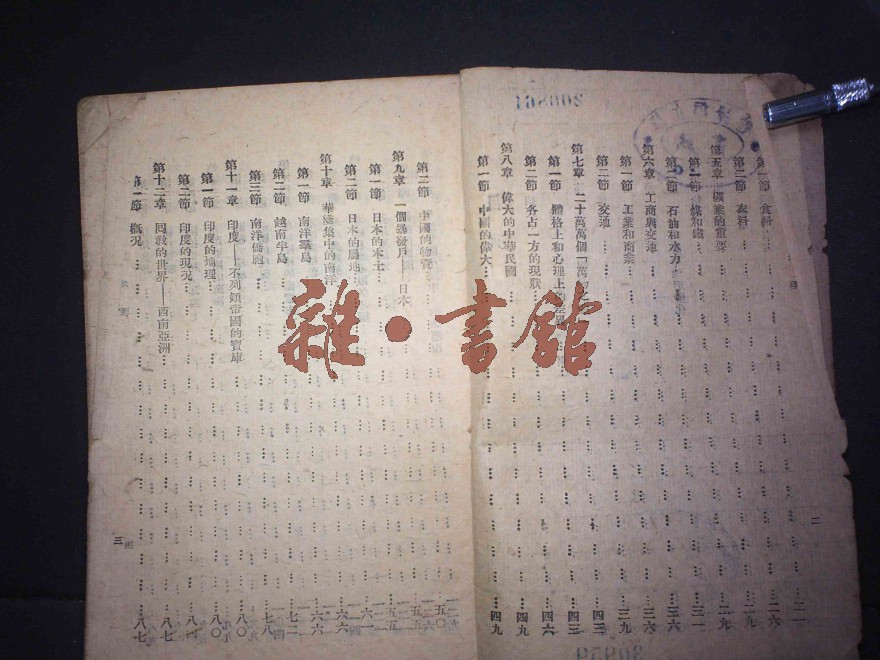 二
第一節 食料 二一
第二節 衣料 二六
第五章 礦業的重要 二九
第一節 煤和鐵 二九
第二節 石油和水力 三一
第六章 工商與交通 三六
第一節 工業和商業 三九
第二節 交通 四三
第七章 二十萬萬個「萬
第一節 體格上和心理上
第二節 各占一方的現狀 四九
第八章 偉大的中華民國 四九
第一節 中國的偉大 四九
第二節 中國的物資 五〇
第九章 一個暴發戶——日本 五五
第一節 日本的本土
第二節 日本的屬地
第十章 華僑集中的南洋 六六
第一節 南洋羣島
第二節 越南半島 七二
第三節 南洋僑胞 七八
第十一章 印度——不列顛帝國的寶庫 八〇
第一節 印度的地理 八〇
第二節 印度的現況
第十二章 回教的世界——西南亞洲 八七
第一節 概況 八七
三
雜·書館